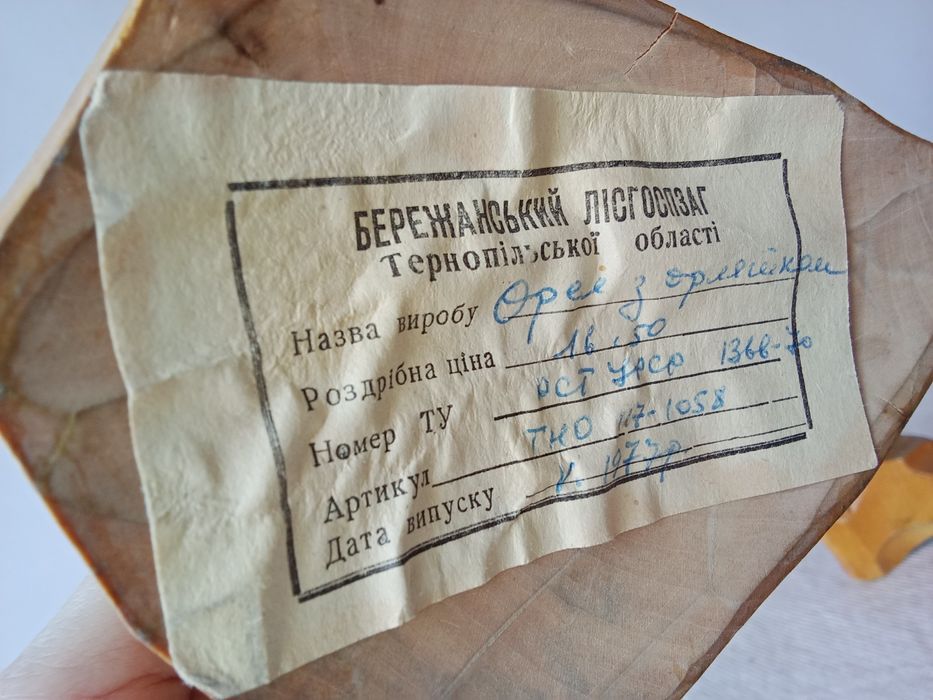 БЕРЕЖАНСЬКИЙ ЛІСГОСПЗАГ
Тернопільської області
Назва виробу Орел з орлятком
Роздрібна ціна 16,50
Номер ТУ РСТ УРСР 1366-70
Артикул ТНО 117-1058
Дата випуску V. 1977р